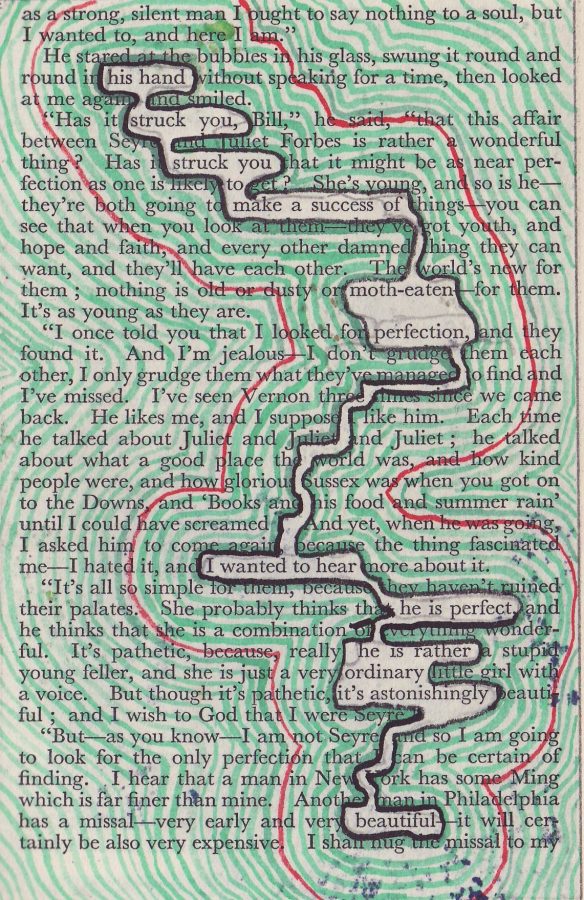 as a strong, silent man I ought to say nothing to a soul, but
I wanted to, and here I am.”
He stared at the bubbles in his glass, swung it round and
round in his hand without speaking for a time, then looked
at me again and smiled.
“Has it struck you, Bill,” he said, “that this affair
between Seyre and Juliet Forbes is rather a wonderful
thing? Has it struck you that it might be as near per-
fection as one is likely to get? She's young, and so is he—
they're both going to make a success of things—you can
see that when you look at them—they've got youth, and
hope and faith, and every other damned thing they can
want, and they'll have each other. The world's new for
them; nothing is old or dusty or moth-eaten—for them.
It's as young as they are.
“I once told you that I looked for perfection, and they
found it. And I'm jealous—I don't grudge them each
other, I only grudge them what they've managed to find and
I've missed. I've seen Vernon three times since we came
back. He likes me, and I suppose I like him. Each time
he talked about Juliet and Juliet and Juliet; he talked
about what a good place the world was, and how kind
people were, and how glorious Sussex was when you got on
to the Downs, and ‘Books and his food and summer rain’
until I could have screamed. And yet, when he was going,
I asked him to come again because the thing fascinated
me—I hated it, and I wanted to hear more about it.
“It's all so simple for them, because they haven't ruined
their palates. She probably thinks that he is perfect, and
he thinks that she is a combination of everything wonder-
ful. It's pathetic, because really he is rather a stupid
young feller, and she is just a very ordinary little girl with
a voice. But though it's pathetic, it's astonishingly beauti-
ful; and I wish to God that I were Seyre.
“But—as you know—I am not Seyre, and so I am going
to look for the only perfection that I can be certain of
finding. I hear that a man in New York has some Ming
which is far finer than mine. Another man in Philadelphia
has a missal—very early and very beautiful—it will cer-
tainly be also very expensive. I shall hug the missal to my